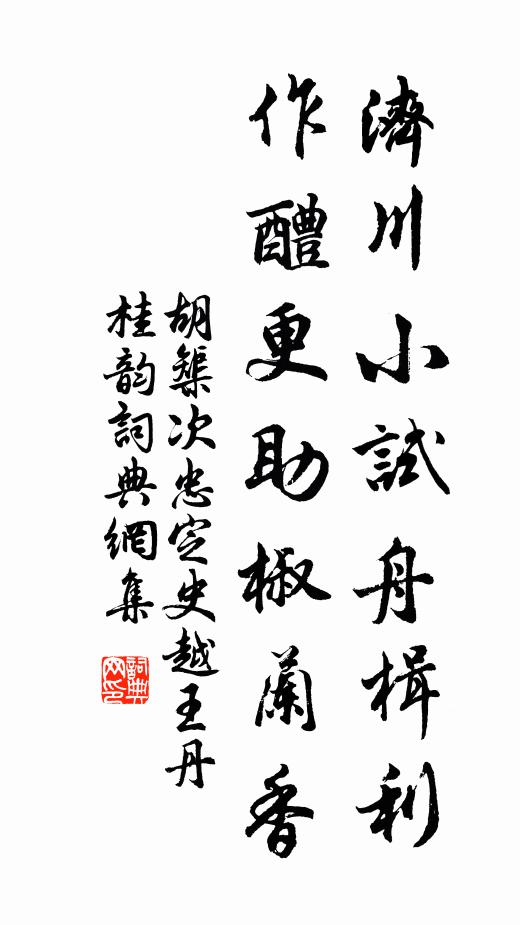 濟川小試舟楫利
作醴更助椒蘭香
胡榘次忠定史越王丹
桂韵詞典網集
詞典网印